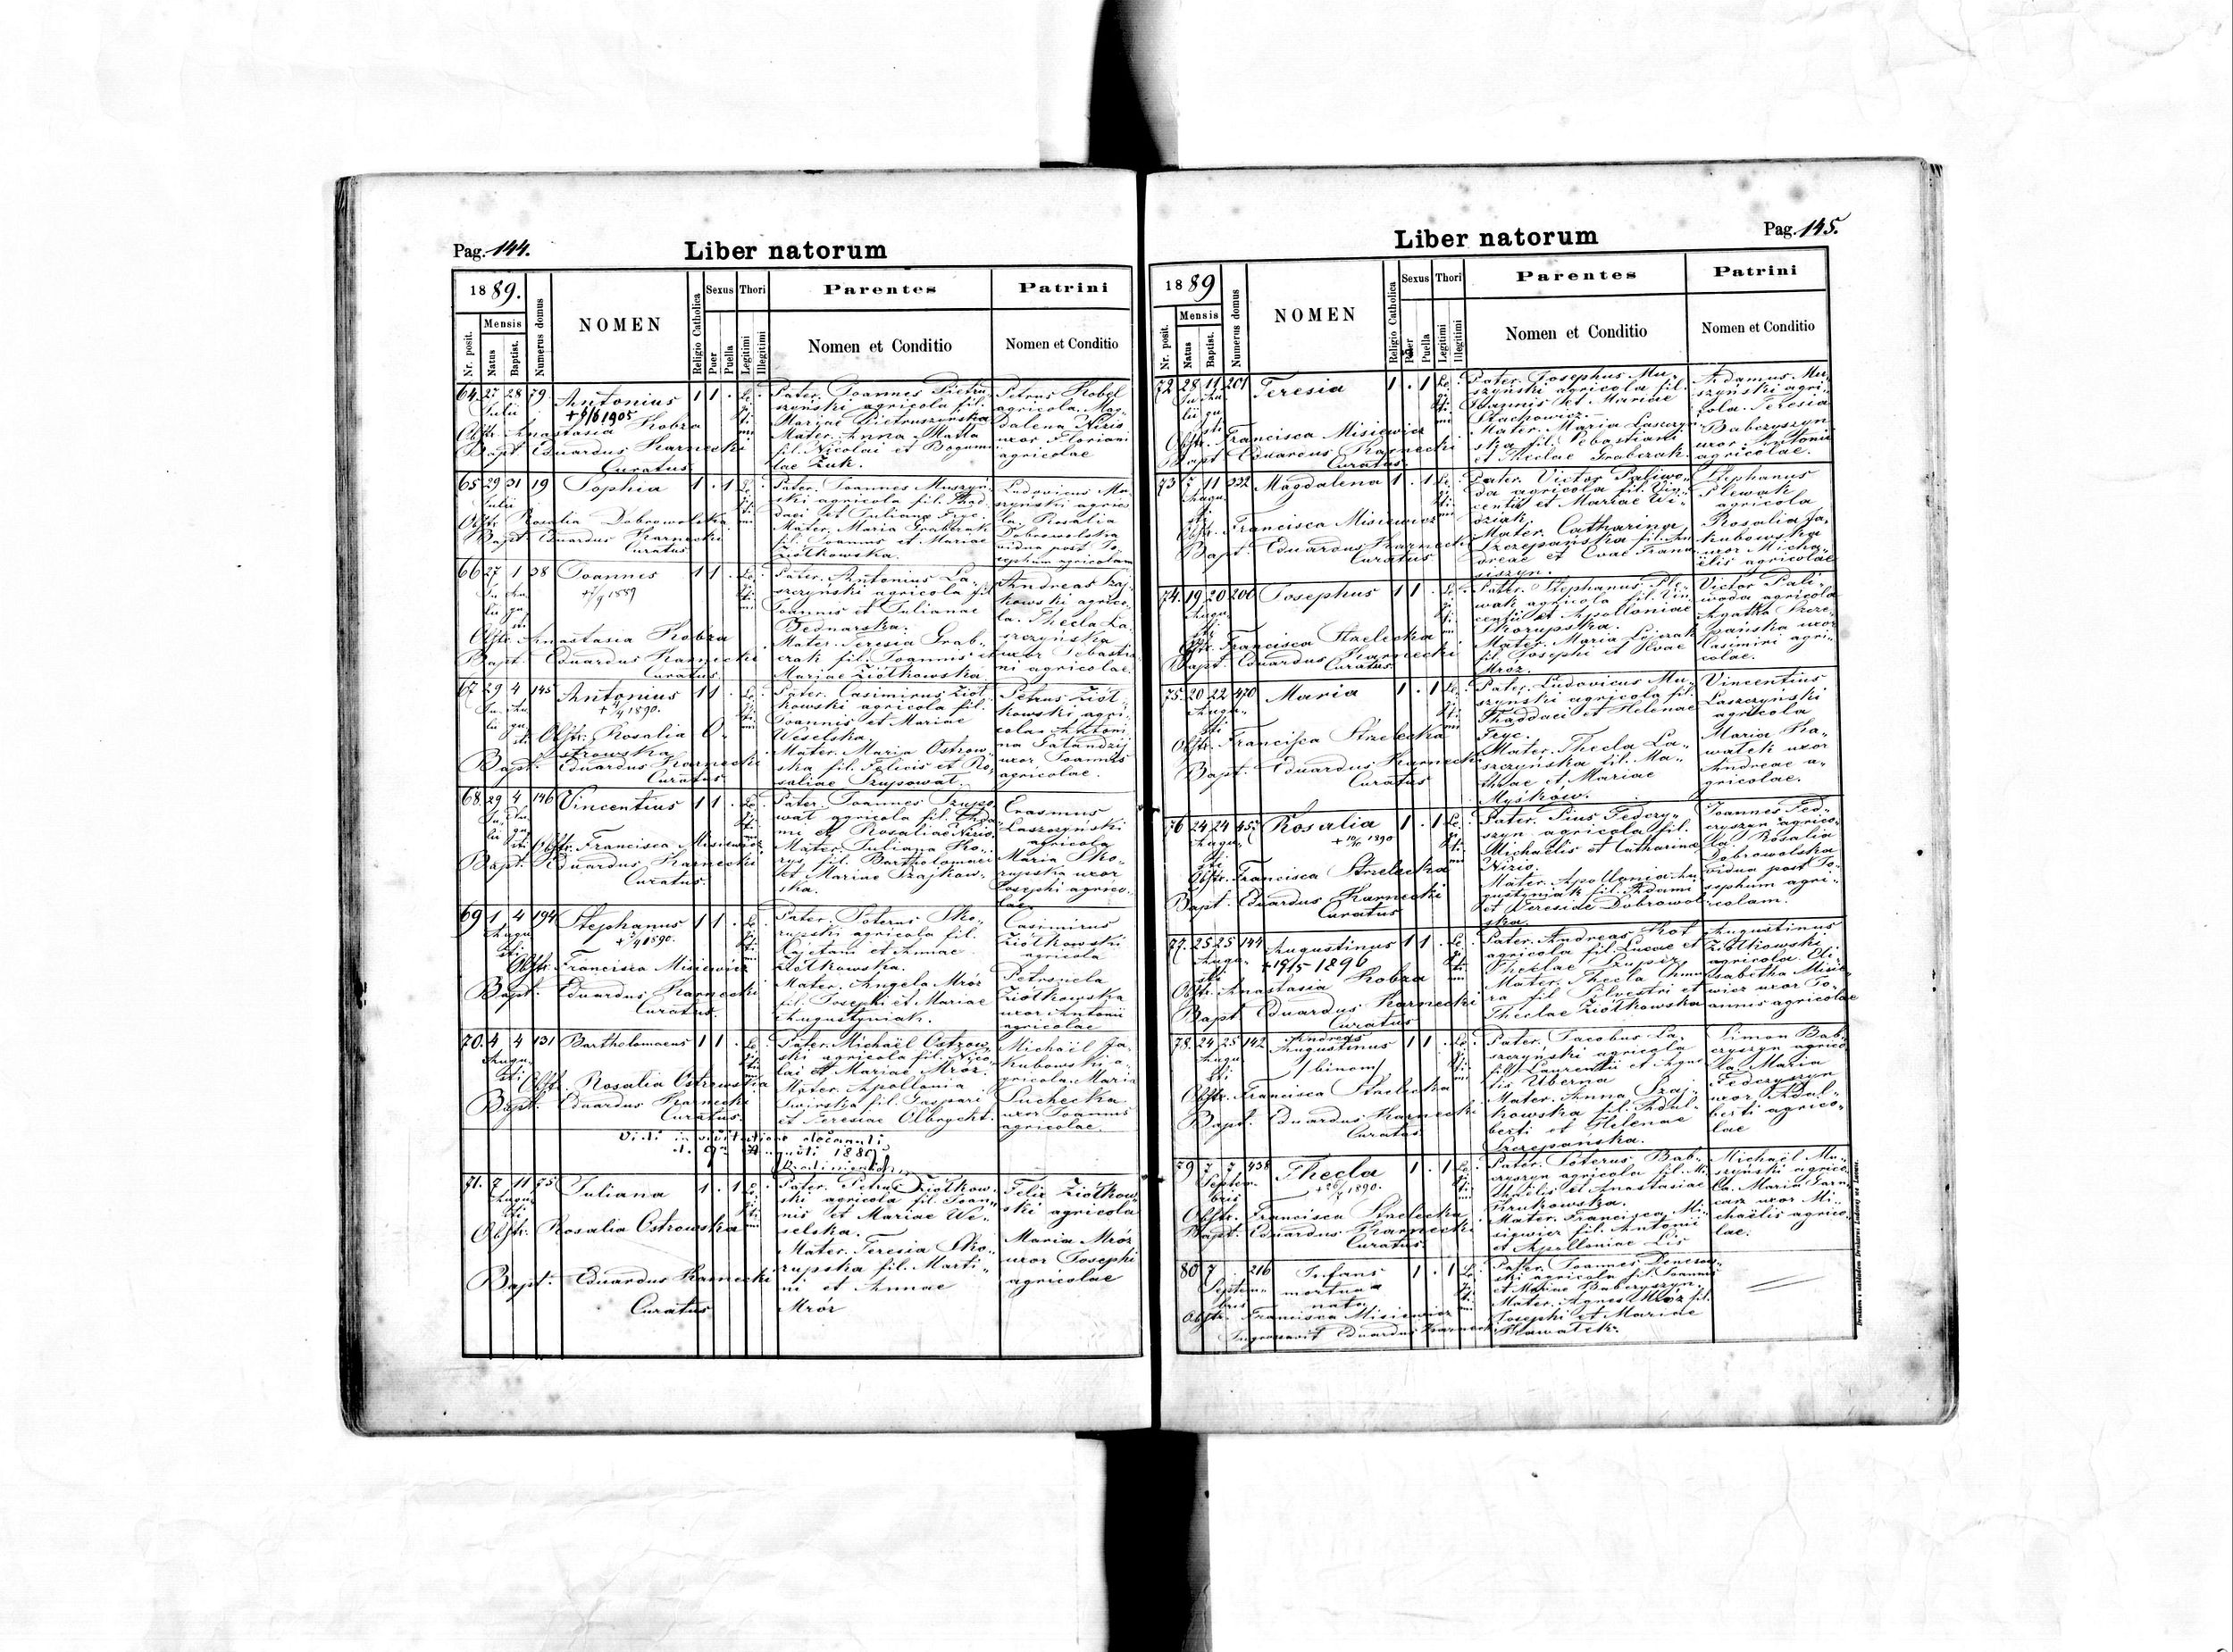 Pag. 144.
Liber natorum
1889.
Mensis
Nr. posit.
Natus
Baptist.
Numerus domus
NOMEN
Religio Catholica
Sexus
Puer
Puella
Thori
Legitimi
Illegitimi
Parentes
Nomen et Conditio
Patrini
Nomen et Conditio
64. 27 28 79 Antonius 1 1
Julii
+ 6/6 1905
Obstr. Anastasia Kobza
Bapt. Eduardus Karnecki
Curatus
Pater. Joannes Pietru-
szyński agricola fil.
Mariae Pietruszyńska
Mater. Anna Matla
fil. Nicolai et Bogumi-
lae Żuk.
Petrus Kobel
agricola. Mag-
dalena Nizio
uxor Floriani
agricolae
65 29 31 19 Sophia 1 . 1
Julii
Obstr. Rosalia Dobrowolska
Bapt. Eduardus Karnecki
Curatus
Pater. Joannes Muszyń-
ski agricola fil. Thad-
daei et Julianae Fryc.
Mater. Maria Grabczak
fil. Joannis et Mariae
Ziółkowska.
Ludovicus Mu-
szyński agrico-
la. Rosalia
Dobrowolska
vidua post Jo-
sephum agricolam
66 27 1 38 Joannes 1 1
Obstr. Anastasia Kobza
Bapt. Eduardus Karnecki
Curatus
Pater. Antonius La-
szczyński agricola fil.
Joannis et Julianae
Bednarska.
Mater. Teresia Grab-
czak fil. Joannis et
Mariae Ziółkowska
Andreas Szaj-
kowski agrico-
la. Thecla La-
szczyńska
uxor Sebastia-
ni agricolae.
67 29 4 145 Antonius 1 1
Obstr. Rosalia O-
strowska
Bapt. Eduardus Karnecki
Curatus
Pater. Casimirus Ziół-
kowski agricola fil.
Joannis et Mariae
Weselska
Mater. Maria Ostrow-
ska fil. Felicis et Ro-
saliae Szupowat.
Petrus Ziół-
kowski agri-
cola. Antoni-
na Galandzij
uxor Joannis
agricolae.
68. 29 4 146 Vincentius 1 1
Obstr. Francisca Misiewicz
Bapt. Eduardus Karnecki
Curatus.
Pater. Joannes Szupo-
wat agricola fil. Ada-
mi et Rosaliae Nizio.
Mater. Juliana Ko-
rys fil. Bartholomaei
et Mariae Szajkow-
ska.
Erasmus
Laszczyński
agricola
Maria Sko-
rupska uxor
Josephi agrico-
lae.
69 1 4 194 Stephanus 1 1
Augu-
sti
Obstr. Francisca Misiewicz
Bapt. Eduardus Karnecki
Curatus.
Pater. Soterus Sko-
rupski agricola fil.
Cajetani et Annae
Ziółkowska.
Mater. Angela Mróz
fil. Josephi et Mariae
Augustyniak.
Casimirus
Ziółkowski
agricola
Petronela
Ziółkowska
uxor Antonii
agricolae
70. 4 4 131 Bartholomaeus 1 1
Augu-
sti
Obstr. Rosalia Ostrowska
Bapt. Eduardus Karnecki
Curatus.
Pater. Michaël Ostrow-
ski agricola fil. Nico-
lai et Mariae Mróz.
Mater. Apollonia
Swirska fil. Gaspari
et Teresiae Olbrycht.
Michaël Ja-
kubowski a-
gricola. Maria
Suchecka
uxor Joannis
agricolae.
Vidi in visitatione decanali
Augusti 1889
71. 7 11 75 Juliana 1 . 1
Augu-
sti
Obstr. Rosalia Ostrowska
Bapt. Eduardus Karnecki
Curatus
Pater. Petrus Ziółkow-
ski agricola fil. Joan-
nis et Mariae We-
selska.
Mater. Teresia Sko-
rupska fil. Marti-
ni et Annae
Mróz
Felix Ziółkow-
ski agricola
Maria Mroz
uxor Josephi
agricolae
Pag. 145.
Liber natorum
1889
Mensis
Nr. posit.
Natus
Baptist.
Numerus domus
NOMEN
Religio Catholica
Sexus
Puer
Puella
Thori
Legitimi
Illegitimi
Parentes
Nomen et Conditio
Patrini
Nomen et Conditio
72 28 11 201 Teresia 1 . 1
Obstr. Francisca Misiewicz
Bapt. Eduardus Karnecki
Curatus
Pater. Josephus Mu-
szyński agricola fil.
Joannis et Mariae
Stachowicz.
Mater. Maria Laszczy-
ska fil. Sebastiani
et Theclae Grabczak.
Adamus Mu-
szyński agri-
cola. Teresia
Babczyszyn
uxor Antonii
agricolae.
73 5 11 332 Magdalena 1 . 1
Augu-
sti
Obstr. Francisca Misiewicz
Bapt. Eduardus Karnecki
Curatus
Pater. Victor Paliwo-
da agricola fil. Vin-
centii et Mariae
Mater. Catharina
Szczepańska fil. An-
dreae et Evae
Stephanus
Plewak
agricola
Rosalia Ja-
kubowska
uxor Micha-
ëlis agricolae
74. 19 20 200 Josephus 1 1
Augu-
sti
Obstr. Francisca Strzelecka
Bapt. Eduardus Karnecki
Curatus
Pater. Stephanus Ple-
wak agricola fil. Vin-
centii et Apolloniae
Skorupska.
Mater. Maria
fil. Josephi et Evae
Mróz.
Victor Pali-
woda agricola
Agatha Szcze-
pańska uxor
Casimiri agri-
colae.
75. 20 22 470 Maria 1 . 1
Augu-
sti
Obstr. Francisca Strzelecka
Bapt. Eduardus Karnecki
Curatus
Pater. Ludovicus Mu-
szyński agricola fil.
Thaddaei et Helenae
Fryc.
Mater. Thecla La-
szczyńska fil. Ma-
thiae et Mariae
Myśków.
Vincentius
Laszczyński
agricola
Maria Ha-
watek uxor
Andreae a-
gricolae.
76 24 24 457 Rosalia 1 . 1
Augu-
sti
Obstr. Francisca Strzelecka
Bapt. Eduardus Karnecki
Curatus
Pater. Pius Fedczy-
szyn agricola fil.
Michaëlis et Catharinae
Nizio.
Mater. Apollonia Au-
gustyniak fil. Adami
et Teresiae Dobrowol-
ska
Joannes Fed-
czyszyn agrico-
la. Rosalia
Dobrowolska
vidua post Jo-
sephum agri-
colam.
77. 25 25 144 Augustinus 1 1
Augu-
sti
+ 19/5 1896
Obstr. Anastasia Kobza
Bapt. Eduardus Karnecki
Curatus
Pater. Andreas Kot
agricola fil. Lucae et
Theclae
Mater. Thecla Chmu-
ra fil Silvestri et
Theclae Ziółkowska
Augustinus
Ziółkowski
agricola. Eli-
sabetha Misie-
wicz uxor Jo-
annis agricolae
78. 24 25 142 Andreas 1 1
Augustinus
/binom/
Augu-
sti
Obstr. Francisca Strzelecka
Bapt. Eduardus Karnecki
Curatus
Pater. Jacobus La-
szczyński agricola
fil. Laurentii et Agne-
tis Uberna
Mater. Anna Szaj-
kowska fil. Adal-
berti et Helenae
Szczepanska.
Simon Bab-
czyszyn agrico-
la. Maria
Fedczyszyn
uxor Adal-
berti agrico-
lae
79 7 7 438 Thecla 1 . 1
Septem-
bris
Obstr. Francisca Strzelecka
Bapt. Eduardus Karnecki
Curatus.
Pater. Soterus Bab-
czyszyn agricola fil. Mi-
chaëlis et Anastasiae
Krukowska.
Mater. Francisca Mi-
siewicz fil. Antonii
et Apolloniae Lis
Michaël Mu-
szyński agrico-
la. Maria Garn-
carz uxor Mi-
chaëlis agrico-
lae.
80 7 216 Infans 1 . 1
Septem-
bris
mortua
nata
Obstr. Francisca Misiewicz
Ingrossavit Eduardus Karnecki
Pater. Joannes
agricola fil. Joannis
et Mariae Babczyszyn.
Mater. Agnes Mróz fil.
Josephi et Mariae
Hawatek.